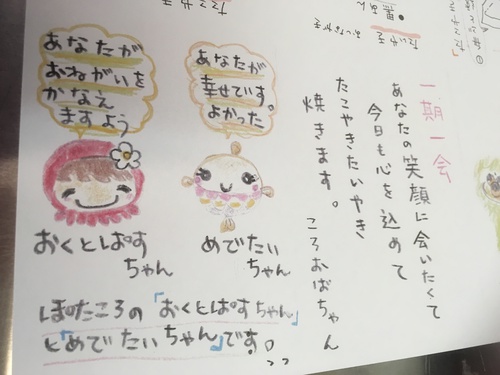 一期一会
あなたの笑顔に会いたくて
今日も心を込めて
たこやきたいやき
焼きます。ころおばちゃん
あなたが
幸せです。
よかった
めでたい
ちゃん
あなたが
おねがいを
かなえ
ますよう
おくとぱす
ちゃん
ぽたころの「おくとぱすちゃん」
と「めでたいちゃん」です!。